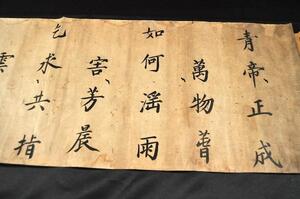 青帝、正成
萬物、
如何滛雨
害、芳晨
乞求、共指
雲